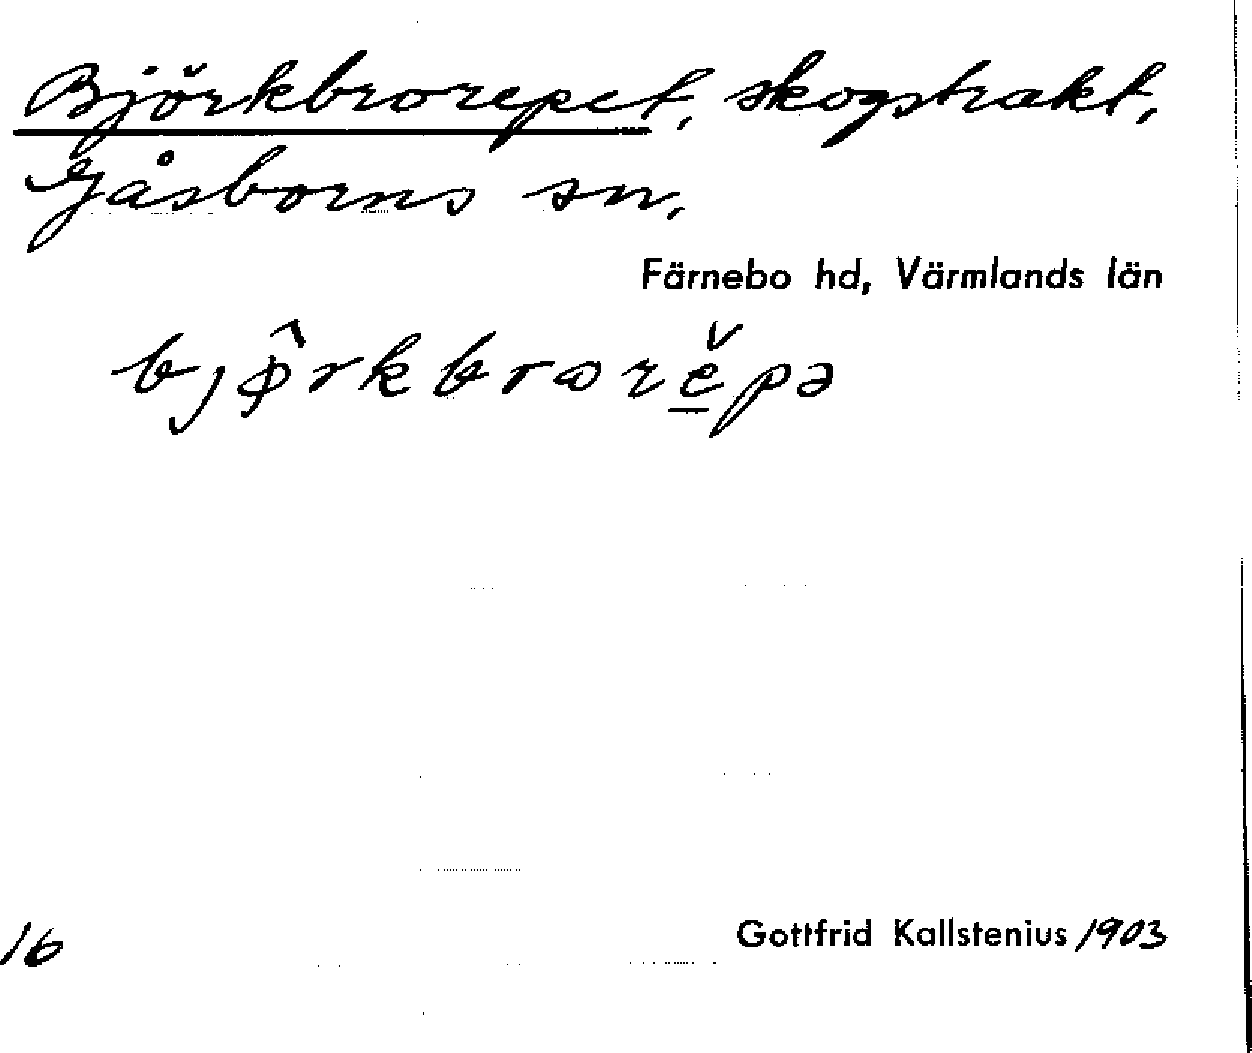 Björkbrorepet, skogstrakt,
Gåsborns sn,
Färnebo hd, Värmlands län
bjø̂rkbrorě̱pə
16
Gottfrid Kallstenius /1903